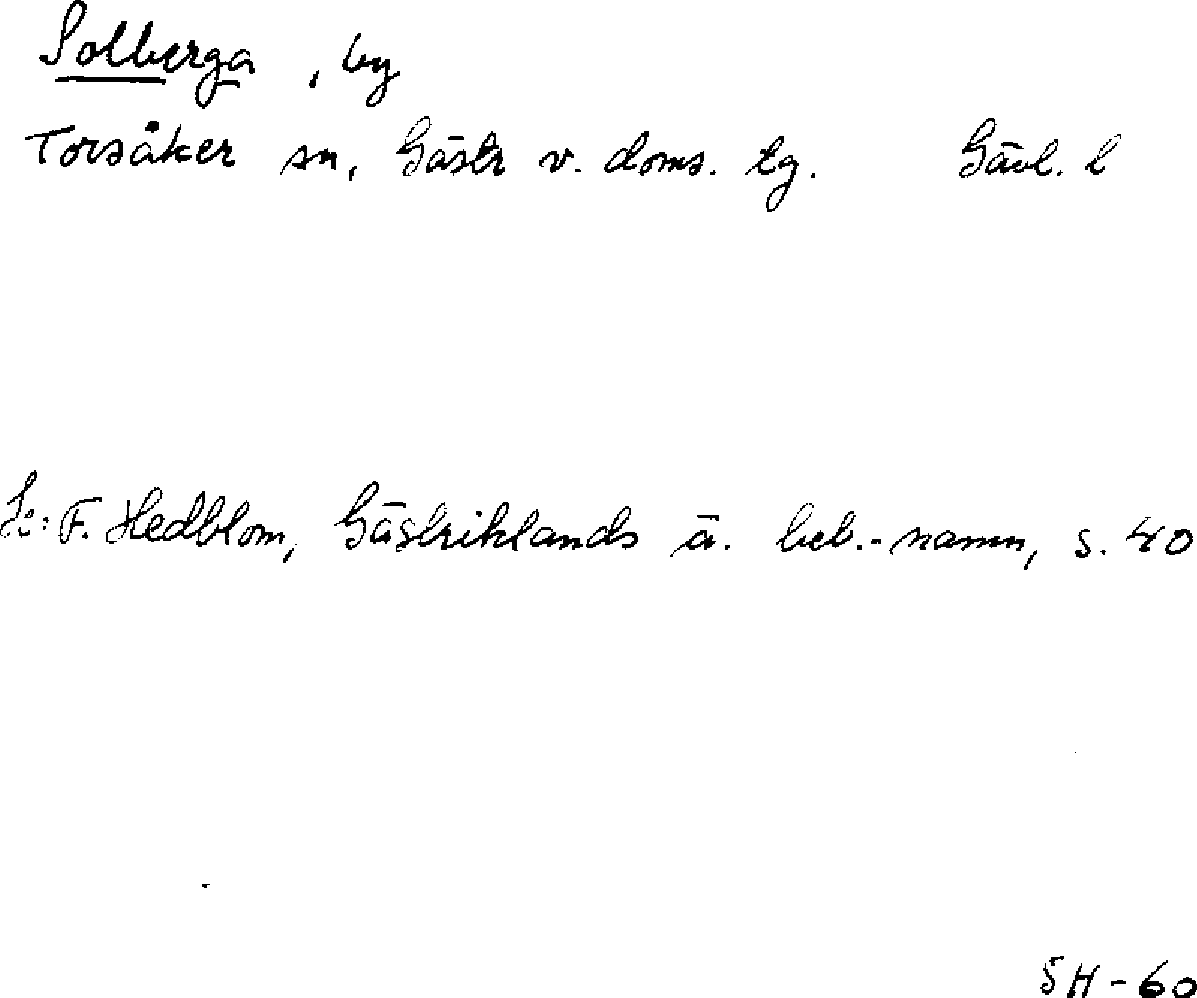 Solberga, by
Torsåker sn, Gästr v. doms. tg. Gävl. l
Se: F. Hedblom, Gästriklands ä. beb.-namn, s. 40
SH-60